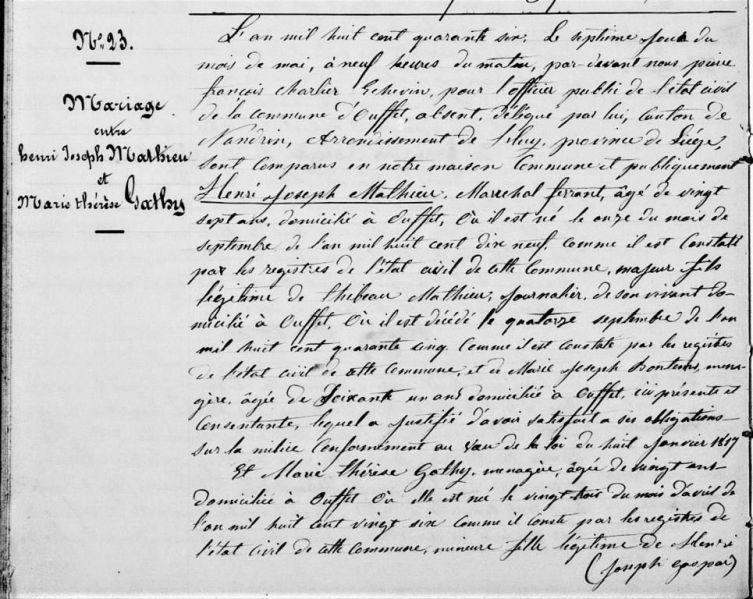 N° 23.
Mariage
entre
henri Joseph Mathieu
et
Marie thérèse Gathy
L'an mil huit cent quarante six, Le septième jour du
mois de mai, à neuf heures du matin, par-devant nous pierre
françois charlier Echevin, pour l'officier public de l'état civil
de la commune d'Ouffet, absent, délégué par lui, canton de
Nandrin, Arrondissement de huy, province de Liége,
sont comparus en notre maison Commune et publiquement
Henri Joseph Mathieu, Marechal ferrant, âgé de vingt
sept ans, domicilié à Ouffet, Où il est né le onze du mois de
septembre de l'an mil huit cent dix neuf, Comme il est Constaté
par les registres de l'état civil de cette Commune, majeur fils
légitime de Mathieu, Journalier, de son vivant do-
micilié à Ouffet, Où il est décédé le quatorze septembre de l'an
mil huit cent quarante cinq Comme il est Constaté par les registres
de l'état civil de cette Commune, et de Marie Joseph ména-
gère, âgée de Soixante un ans domiciliée à Ouffet, ici présente et
Consentante, lequel a justifié d'avoir satisfait a ses obligations
sur la milice Conformément au Vœu de la loi du huit Janvier 1817
Et Marie thérèse Gathy, menagère, âgée de vingt ans
domiciliée à Ouffet Où elle est né le vingt trois du mois d'avril de
l'an mil huit cent vingt six comme il Conste par les registres de
l'état civil de cette Commune, mineure fille légitime de Henri
(Joseph gaspar)